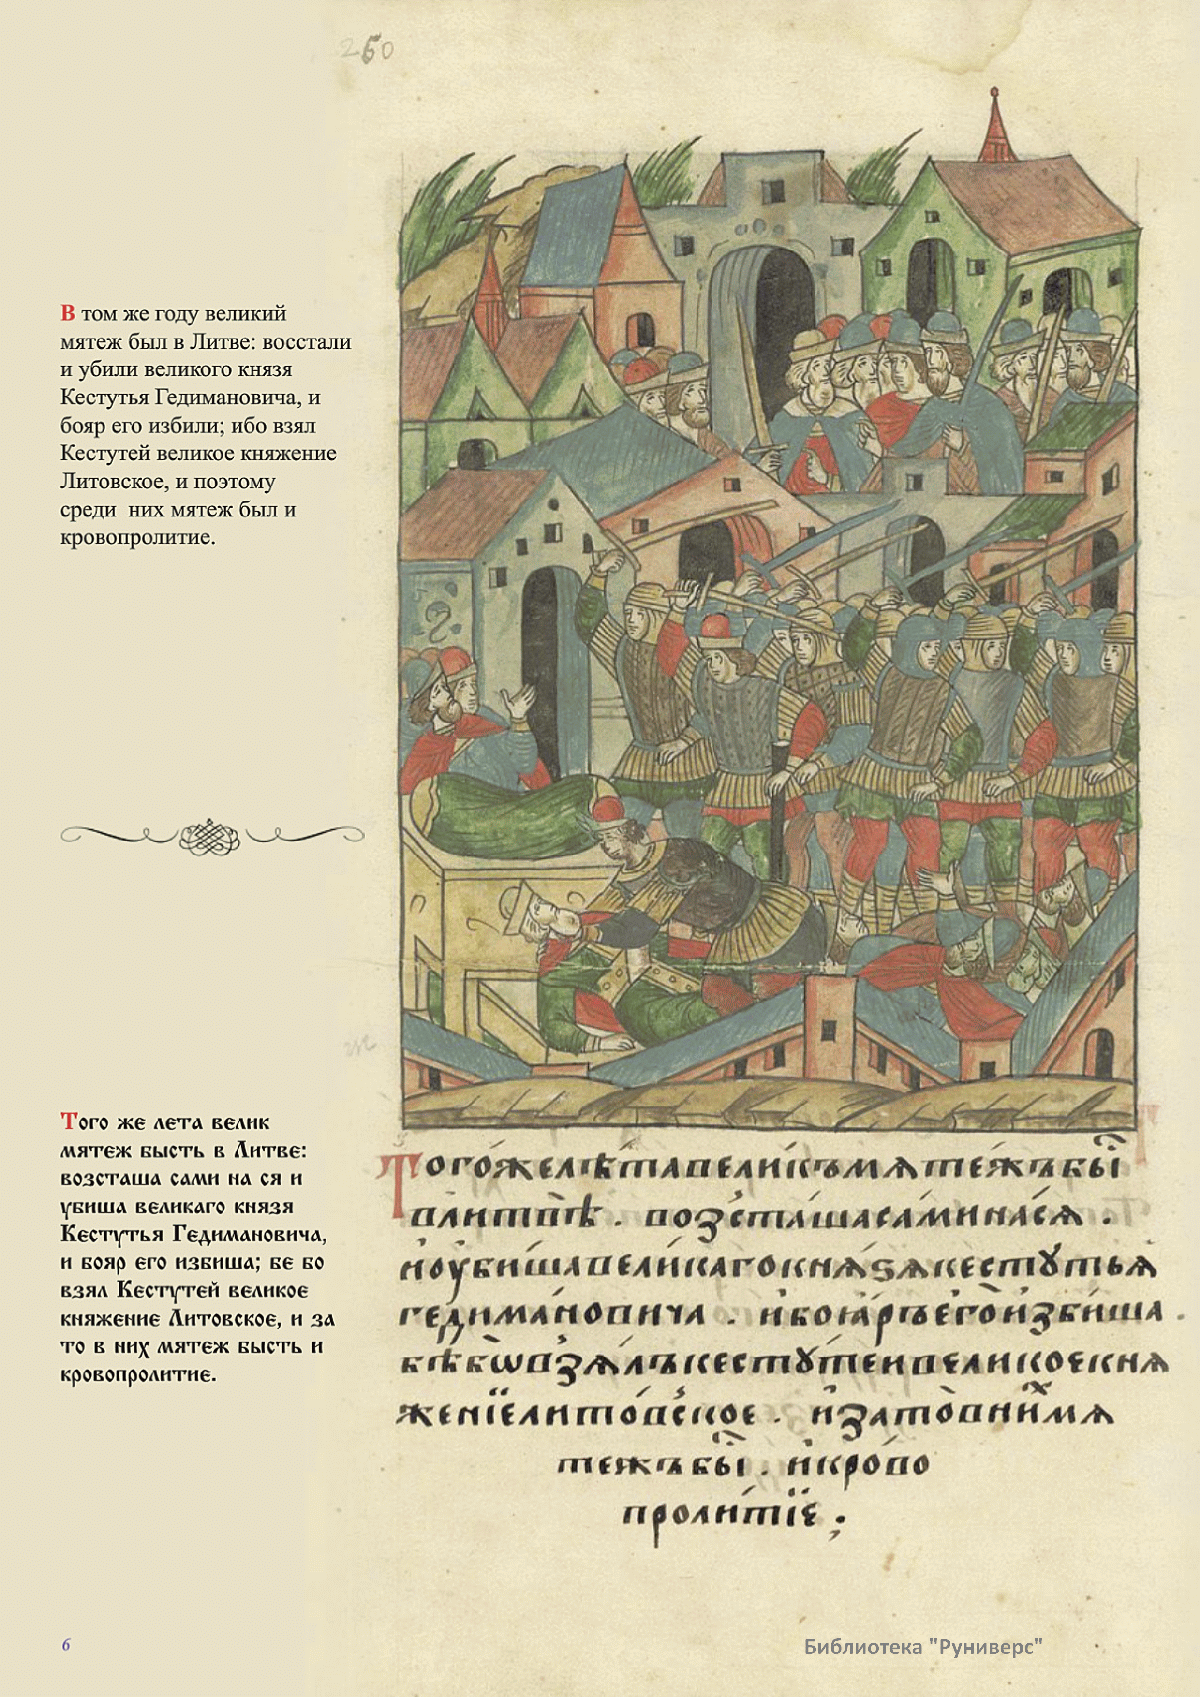 260
В том же году великий
мятеж был в Литве: восстали
и убили великого князя
Кестутья Гедимановича, и
бояр его избили; ибо взял
Кестутей великое княжение
Литовское, и поэтому
среди них мятеж был и
кровопролитие.
Того же лета велик
мятеж бысть в Литве:
возсташа сами на ся и
убиша великаго князя
Кестутья Гедимановича,
и бояр его избиша; бе бо
взял Кестутей великое
княжение Литовское, и за
то в них мятеж бысть и
кровопролитие.
Того́же лѣта великъ мѧте́жъ бы̑
влитвѣ . возста́ша са́ми на сѧ̀ .
и҆ оу҆би́ша вели́каго кнѧ́ѕѧ кестꙋ́тьѧ
гедима́новича . и҆ боꙗ́ръ е҆го̀ и҆зби́ша .
бѣ́ бѡ взѧ́лъ кестꙋ́теи вели́кое кнѧ
же́нїе лито́вское . и҆ за то̀ в ни́х мѧ
те́жъ бы̑ . и҆ кро́во
проли́тїе ;
6
Библиотека "Руниверс"